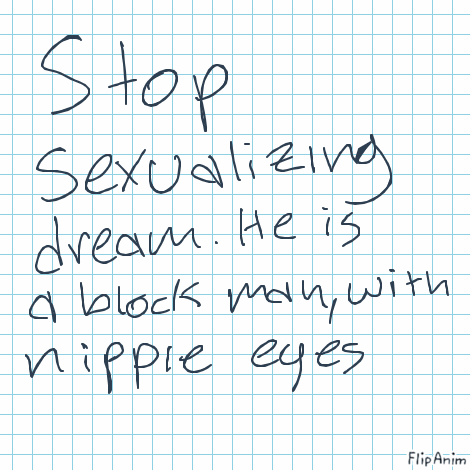 Stop
sexualizing
dream. He is
a block man, with
nipple eyes
FlipAnim